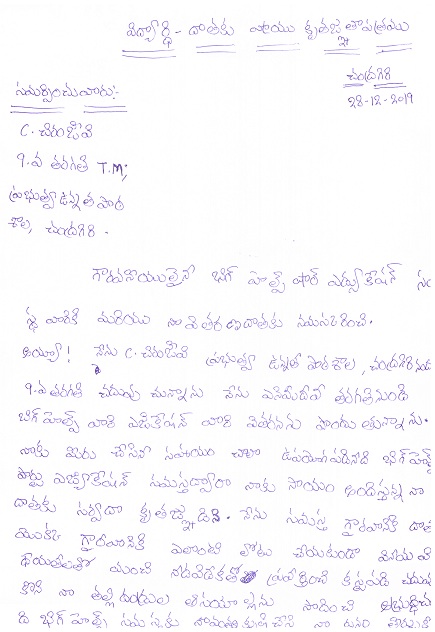 విద్యార్థి - దాతకు వ్రాయు కృతజ్ఞతాపత్రము
చంద్రగిరి
28-12-2019
సమర్పించువారు:
C. చిరంజీవి
9.వ తరగతి T.M;
ప్రభుత్వ ఉన్నత పాఠ
శాల, చంద్రగిరి.
గౌరవనీయులైన బిగ్ హెల్ప్ ఫార్ ఎడ్యుకేషన్ సం
స్థ వారికి మరియు నా వితరణదాతకు నమస్కరించి.
అయ్యా! నేను C. చిరంజీవి ప్రభుత్వ ఉన్నత పాఠశాల, చంద్రగిరి నందు
9.వ తరగతి చదువు చున్నాను నేను ఎనిమిదవ తరగతినుండి
బిగ్ హెల్ప్ వారి ఎడికేషన్ వారి వితరనను పొందు తున్నాను.
నాకు మీరు చేసిన సహాయం చాలా ఉపయోగపడినది బిగ్ హెల్ప్
ఫార్డు ఎజ్యుకేషన్ సమస్తద్వారా నాకు సాయం అందిస్తున్న నా
దాతకు సర్వదా కృతజ్ఞుడిని. నేను సమస్త గౌరవానికి దాత
యొక్క గౌరవానికి ఎలాంటి లోటు చేయకుండా వినయ వి
ధేయతలతో మంచి నడవడికతో ప్రవర్తించి కష్టపడి చదువు
కొని నా తల్లి దండ్రుల ఆశయాలను సాధించి
ది బిగ్ హెల్ప్ సమస్తకు చేసి నా